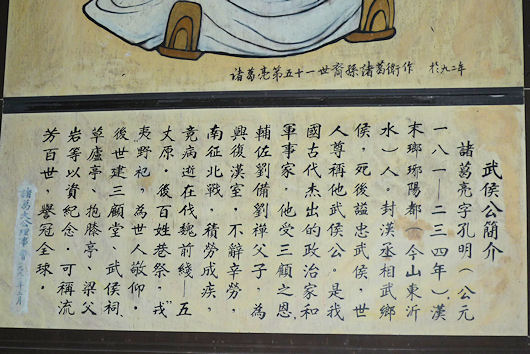 諸葛亮第五十一世裔孫諸葛衛作 於九二年
武侯公簡介
諸葛亮字孔明（公元
一八一—二三四年），漢
末瑯琊陽都（今山東沂
水）人。封漢丞相武鄉
侯，死後謚忠武侯，世
人尊稱他武侯公。是我
國古代杰出的政治家和
軍事家，他受三顧之恩，
輔佐劉備劉禪父子，為
興復漢室，不辭辛勞，
南征北戰，積勞成疾，
竟病逝在伐魏前綫——五
丈原。後百姓巷祭，“戎
夷野祀”，為世人敬仰。
後世建三顧堂、武侯祠、
草廬亭、抱膝亭、梁父
岩等以資紀念。可稱流
芳百世，譽冠全球。
諸葛大公理事會